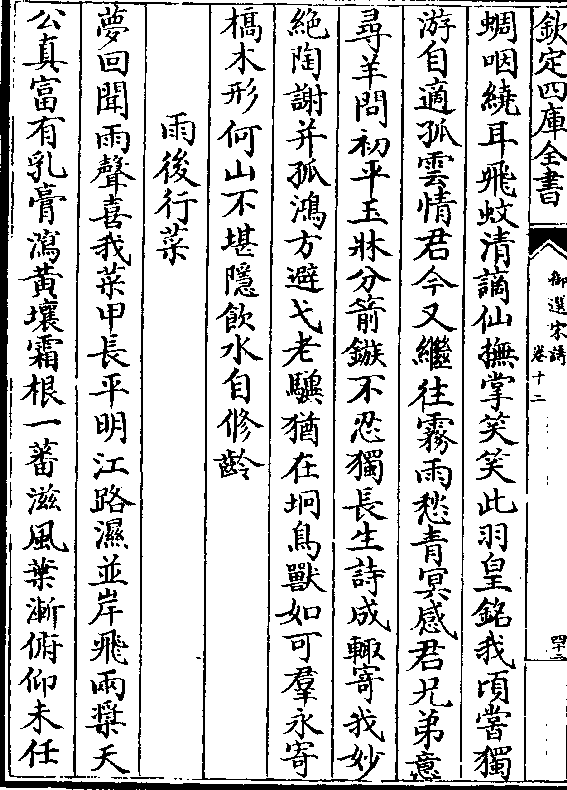 欽定四庫全書
御選宋詩
卷十二
四十二
蜩咽繞耳飛蚊清謫仙撫掌笑笑此羽皇銘我頃嘗獨
游自適孤雲情君今又繼往霧雨愁青冥感君兄弟意
尋羊問初平玉牀分箭鏃不忍獨長生詩成輒寄我妙
絶陶謝并孤鴻方避弋老驥猶在坰鳥獸如可羣永寄
槁木形何山不堪隱飲水自修齡
雨後行菜
夢回聞雨聲喜我菜甲長平明江路濕並岸飛兩槳天
公真富有乳膏瀉黃壤霜根一蕃滋風葉漸俯仰未任